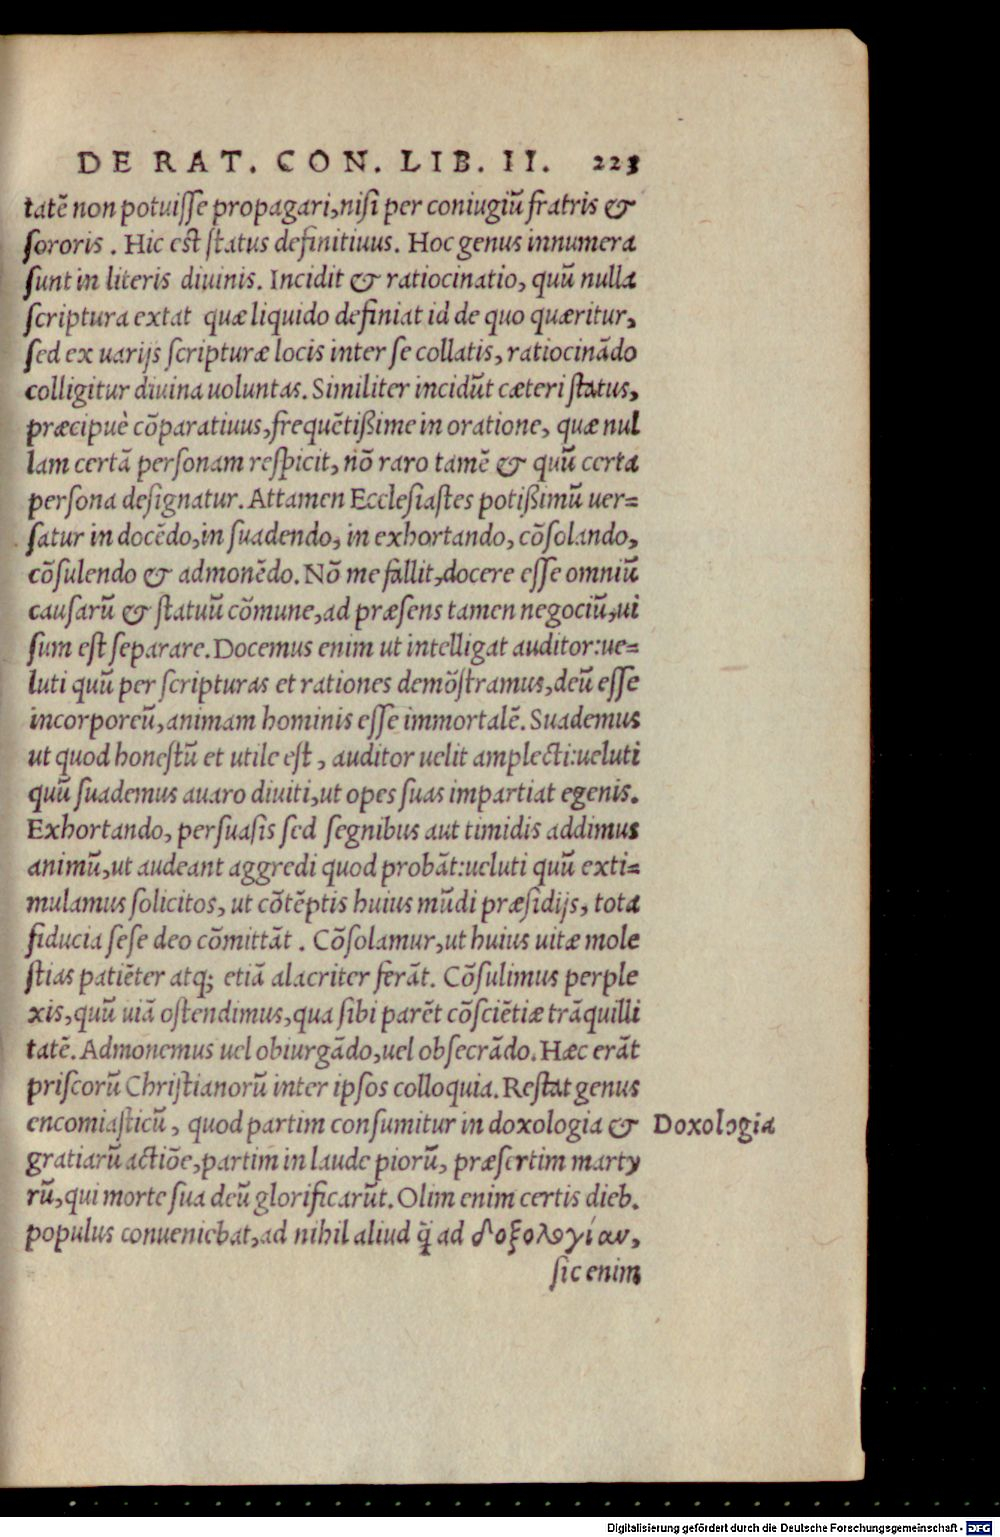 DE RAT. CON. LIB. II. 223
tatē non potuiſſe propagari, niſi per coniugiū fratris &
ſororis. Hic eſt ſtatus definitiuus. Hoc genus innumera
ſunt in literis diuinis. Incidit & ratiocinatio, quū nulla
ſcriptura extat quæ liquido definiat id de quo quæritur,
ſed ex uarijs ſcripturæ locis inter ſe collatis, ratiocinādo
colligitur diuina uoluntas. Similiter incidūt cæteri ſtatus,
præcipuè cōparatiuus, frequētißime in oratione, quæ nul
lam certā perſonam reſpicit, nō raro tamē & quū certa
perſona deſignatur. Attamen Eccleſiaſtes potißimū uer=
ſatur in docēdo, in ſuadendo, in exhortando, cōſolando,
cōſulendo & admonēdo. Nō me fallit, docere eſſe omniū
cauſarū & ſtatuū cōmune, ad præſens tamen negociū, ui
ſum eſt ſeparare. Docemus enim ut intelligat auditor: ue=
luti quū per ſcripturas et rationes demōſtramus, deū eſſe
incorporeū, animam hominis eſſe immortalē. Suademus
ut quod honeſtū et utile eſt, auditor uelit amplecti: ueluti
quū ſuademus auaro diuiti, ut opes ſuas impartiat egenis.
Exhortando, perſuaſis ſed ſegnibus aut timidis addimus
animū, ut audeant aggredi quod probāt: ueluti quū exti=
mulamus ſolicitos, ut cōtēptis huius mūdi præſidijs, tota
fiducia ſeſe deo cōmittāt. Cōſolamur, ut huius uitæ mole
ſtias patiēter atq; etiā alacriter ferāt. Cōſulimus perple
xis, quū uiā oſtendimus, qua ſibi parēt cōſciētiæ trāquilli
tatē. Admonemus uel obiurgādo, uel obſecrādo. Hæc erāt
priſcorū Chriſtianorū inter ipſos colloquia. Reſtat genus
encomiaſticū, quod partim conſumitur in doxologia & Doxologia
gratiarū actiōe, partim in laude piorū, præſertim marty
rū, qui morte ſua deū glorificarūt. Olim enim certis dieb.
populus conueniebat, ad nihil aliud q̄̀ ad δοξολογίαν,
ſic enim
Digitalisierung gefördert durch die Deutsche Forschungsgemeinschaft - DFG